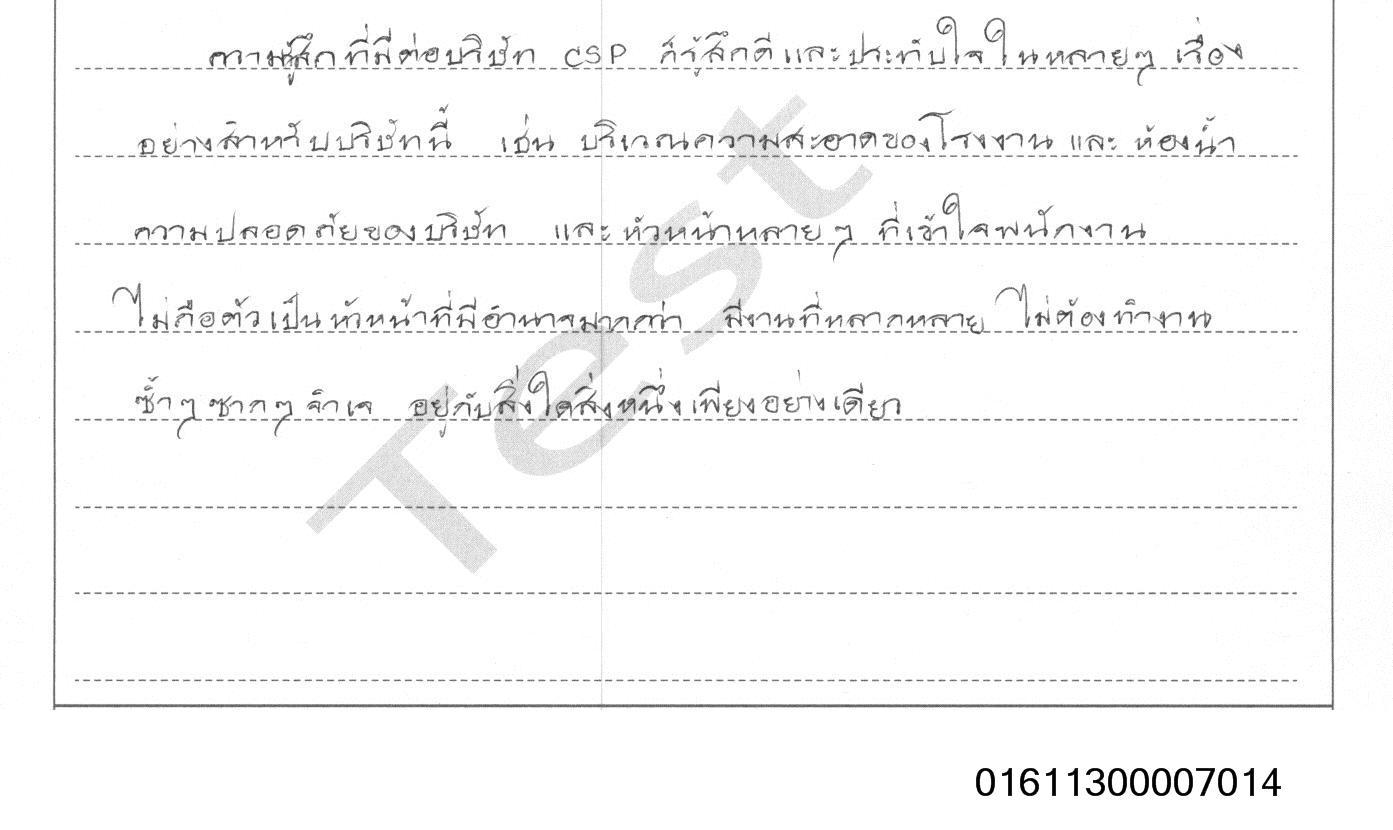 ความรู้สึกที่มีต่อบริษัท CSP ก็รู้สึกดีและประทับใจในหลายๆ เรื่อง
อย่างสำหรับบริษัทนี้ เช่น บริเวณความสะอาดของโรงงาน และ ห้องน้ำ
ความปลอดภัยของบริษัท และหัวหน้าหลายๆ ที่เข้าใจพนักงาน
ไม่ถือตัวเป็นหัวหน้าที่มีอำนาจมากกว่า มีงานที่หลากหลาย ไม่ต้องทำงาน
ซ้ำๆ ซากๆ จำเจ อยู่กับสิ่งใดสิ่งหนึ่งเพียงอย่างเดียว
Test
01611300007014